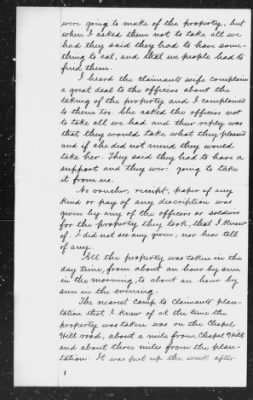 were going to make of the property, but
when I asked them not to take all we
had they said they had to have some-
thing to eat, and that we people had to
find them.
I heard the claimants wife complain
a great deal to the officers about the
taking of the property and I complained
to them too. She asked the officers not
to take all we had and their reply was
that they would take what they pleased
and if she did not mind they would
take her. They said they had to have a
support and they were going to take
it from us.
No voucher, receipt, paper of any
kind or pay of any discription was
given by any of the officers or soldiers
for the property they took, that I know
of. I did not see any given, nor hear tell
of any.
All the property was taken in the
day time, from about an hour by sun
in the morning, to about an hour by
sun in the evening.
The nearest camp to claimants plan-
tation that I knew of at the time the
property was taken was on the Chapel
Hill road, about a mile from Chapel Hill
and about three miles from the plan-
tation. It was put up the week after